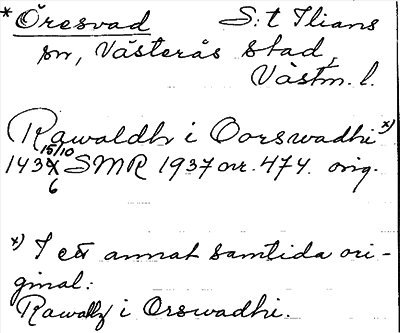 * Öresvad S:t Ilians
sn, Västerås stad,
Västm. l.
Rawaldh i Oorswadhi x)
15/10
1436 SMR 1937 nr. 474. orig.
x) I ett annat samtida ori-
ginal:
Rawaldh i Orswadhi.